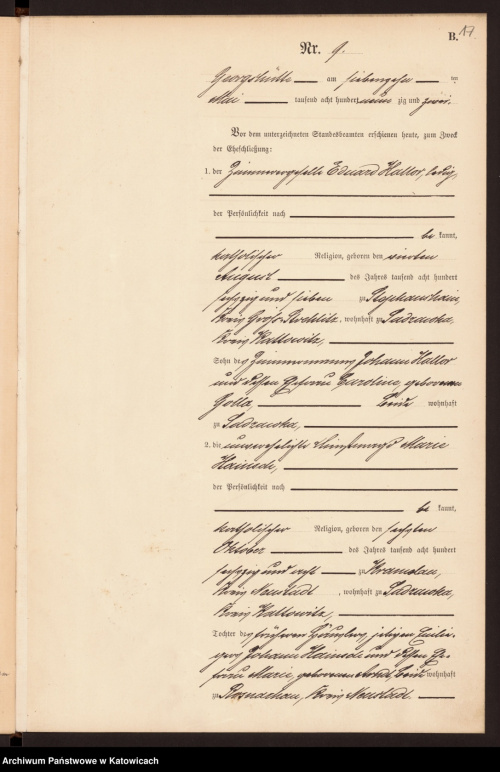 B. 17
Nr. 9.
Georgshütte am siebenzehn ten
Mai tausend acht hundert neun zig und zwei.
Vor dem unterzeichneten Standesbeamten erschienen heute, zum Zweck
der Eheschließung:
1. der Zimmergeselle Eduard Hallor, ledig,
der Persönlichkeit nach
be kannt,
katholischer Religion, geboren den vierten
August des Jahres tausend acht hundert
sechszig und sieben zu Stephanshain,
Kreis Groß-Strehlitz, wohnhaft zu Sadzawka,
Kreis Kattowitz,
Sohn des Zimmermanns Johann Hallor
und dessen Ehefrau Caroline, geborenen
Golla, beide wohnhaft
zu Sadzawka,
2. die unverehelichte Marie
der Persönlichkeit nach
be kannt,
katholischer Religion, geboren den sechsten
Oktober des Jahres tausend acht hundert
sechszig und acht zu
Kreis Neustadt, wohnhaft zu Sadzawka,
Kreis Kattowitz,
Tochter des früheren Häuslers, jetzigen
Johann und dessen Ehe-
frau Marie, geborenen beide wohnhaft
zu Kreis Neustadt.
Archiwum Państwowe w Katowicach